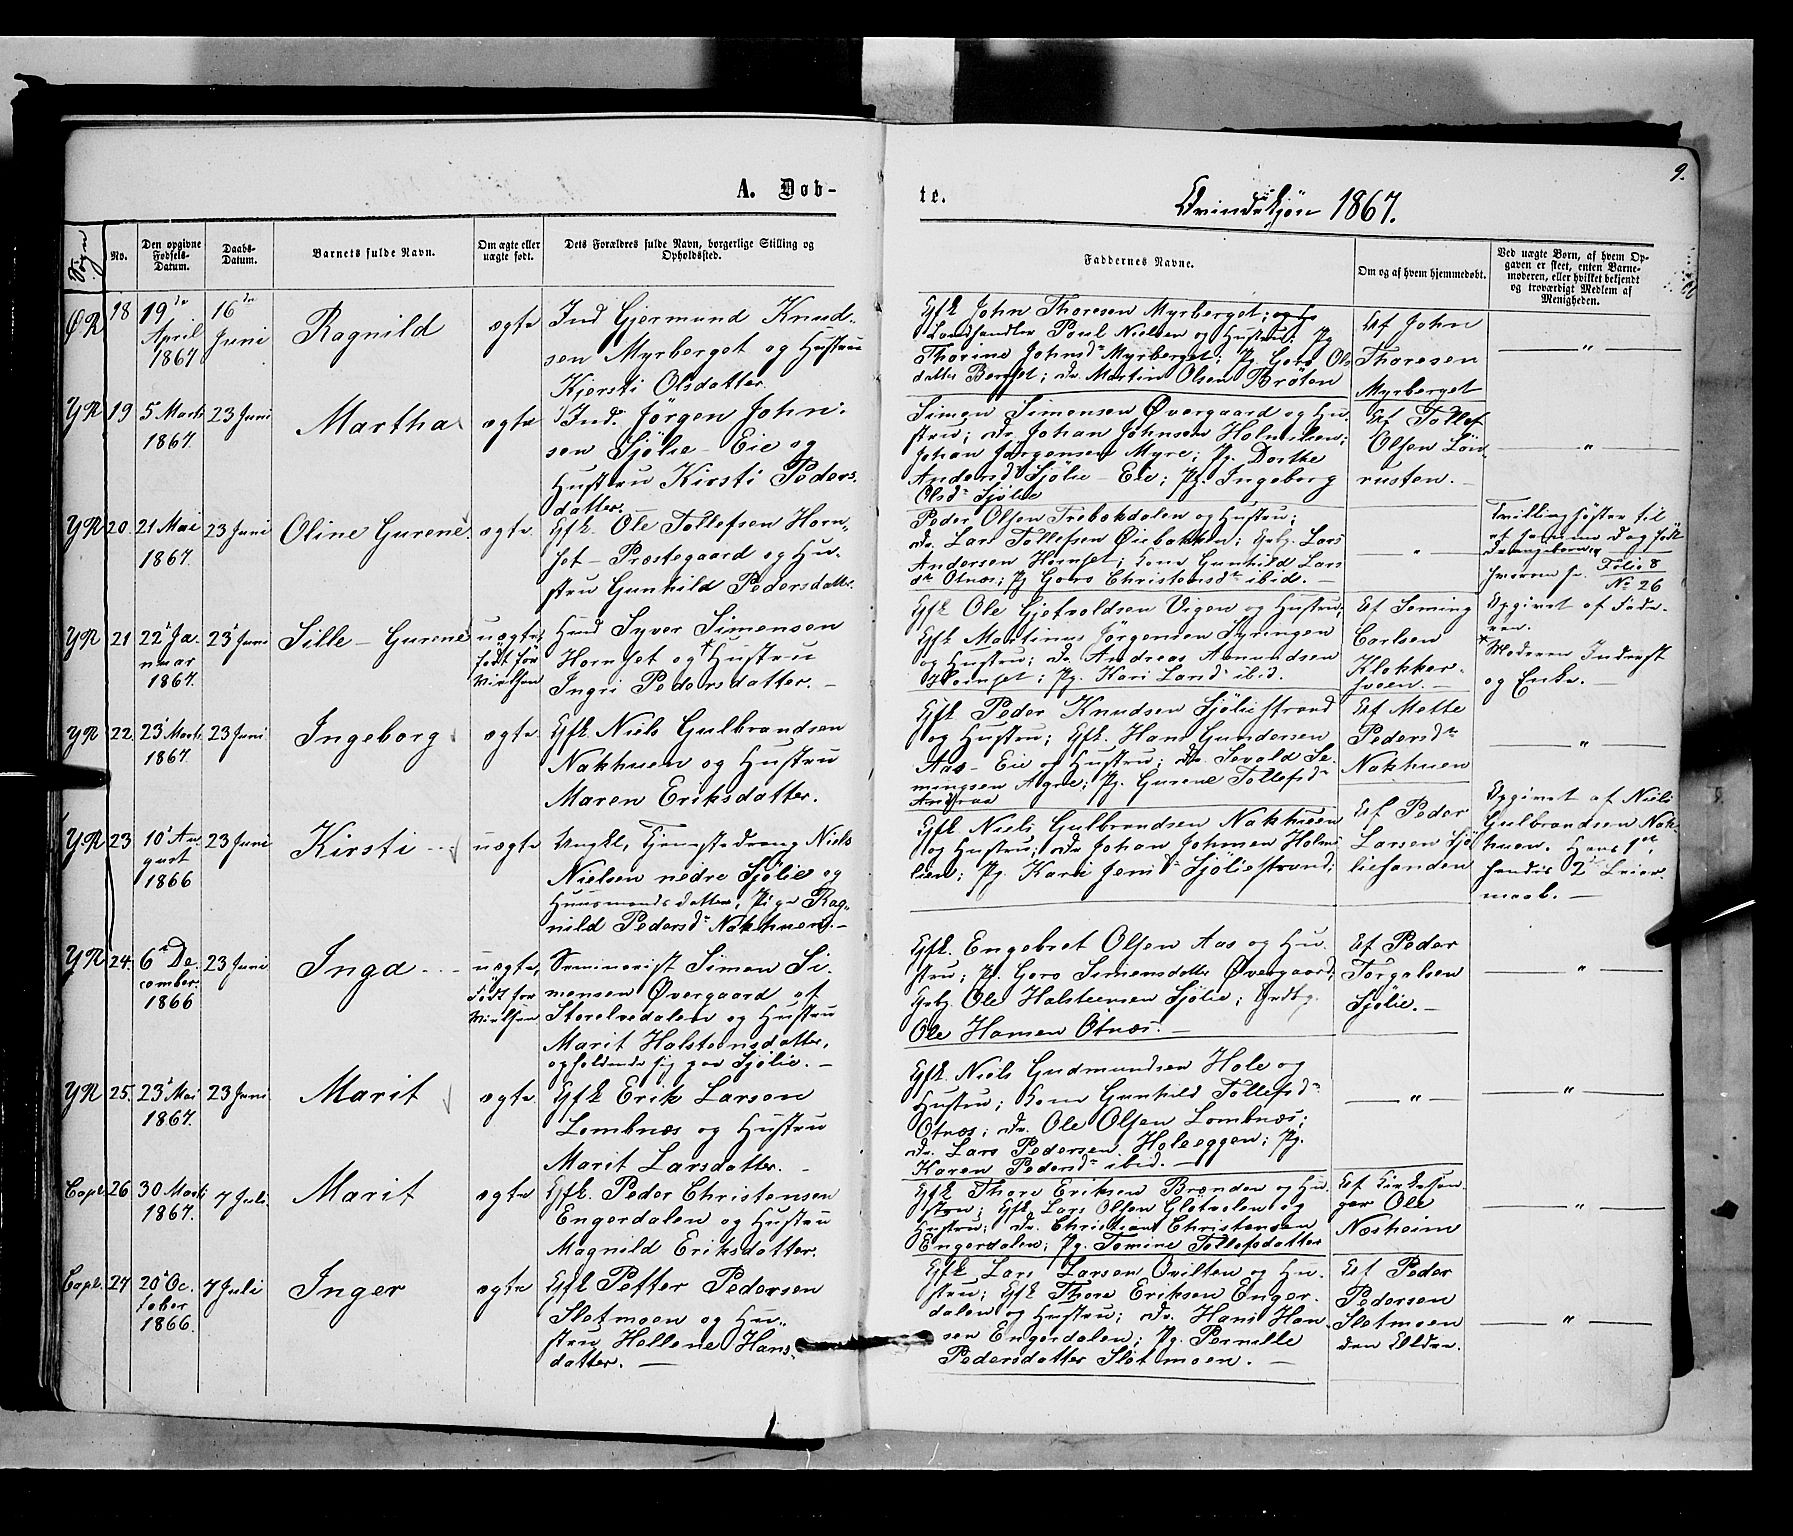 9.
A. Døb-
te.
Qvindekjøn 1867.
Sogn
No.
Den opgivne Fødsels-Datum.
Daabs-Datum.
Barnets fulde Navn.
Om ægte eller uægte født.
Dets Forældres fulde Navn, borgerlige Stilling og Opholdssted.
Faddernes Navne.
Om og af hvem hjemmedøbt.
Ved uægte Børn, af hvem Opgaven er skeet, enten Barnemoderen, eller hvilket bekjendt og troværdigt Medlem af Menigheden.
ØR 18 19de April 1867 16de Juni Ragnild ægte
Ind Gjermund Knud-
sen Myrberget og Hustru
Kjersti Olsdatter.
Gfk John Thoresen Myrberget;
Landhandler Poul Nielsen og Hustru; Pg
Thorine Johnsdr Myrberget; Pg. Goro Ols
datter Berget; Dr. Martin Olsen Bröten
Af John
Thoresen
Myrberget
"
YR 19 5 Marts 1867. 23 Juni Martha ægte
Ind. Jörgen John-
sen Sjölie-Eie og
Hustru Kirsti Peders-
datter.
Simen Simensen Övergaard og Hu-
stru; Dr. Johan Johnsen Holmilen;
Johan Jörgensen Myre; Pg. Dorthe
Andersdr Sjölie-Eie; Pg. Ingeborg
Olsdr Sjölie
Af Tollef
Olsen Lön
rusten.
"
YR 20. 21 Mai 1867. 23 Juni Oline Gurene ægte.
Gfk. Ole Tollefsen Horn-
set-Præstegaard og Hu-
stru Gunhild Pedersdatter.
Peder Olsen Trebakdalen og Hustru;
Dr. Lars Tollefsen Öiebakken; Gbg. Lars
Andersen Hornset; Kone Gunhild Lars
dr Otnæs; Pg Goro Christensdr ibid. —
"
Tvillingsöster til
et samme Dag föd
Drengebarn,
hvorom se. Folio 8
No 26
YR 21 22de Januar 1867. 23de Juni Sille-Gurene uægte, født før Vielsen
Hmd Syver Simensen
Hornset og *Hustru
Ingri Pedersdatter. —
Gfk Ole Gjetvoldsen Vigen og Hustru;
Gfk Martinus Jörgensen Kyringen
og Hustru; Dr. Andreas Amundsen
Hornset; Pg. Kari Larsdr ibid.
Af Seming
Carlsen
Klokker-
sveen. —
Opgivet af Fade-
ren.
*Moderen Inderst
og Enke. —
YR 22. 23de Marts 1867. 23 Juni Ingeborg ægte
Gfk Niels Gulbrandsen
Nakhuen og Hustru
Maren Eriksdatter.
Gfk Peder Knudsen Sjöliestrand
og Hustru; Gfk. Hans Gundersen
Aas-Eie og Hustru; Dr. Sevald Se-
mingsen Agre; Pg. Gurene Tollefsdr
Andraa
Af Mette
Pedersdr
Nakhuen
"
YR 23 10de August 1866 23 Juni Kirsti uægte
Ungkl. Tjenestedreng Niels
Nielsen nedre Sjölie og
Huusmandsdatter, Pige Rag-
nild Pedersdr Nakhuen. —
Gfk Niels Gulbrandsen Nakhuen
og Hustru; Dr Johan Johnsen Holmi
lien; Pg. Kari Jensdr Sjöliestrand;
Af Peder
Larsen Sjö
liesanden
Opgivet af Niels
Gulbrandsen Nak-
huen. Hans
2det Leier-
maal. —
YR 24. 6te December 1866 23 Juni Inga uægte, født før Vielsen
Seminarist Simen Si-
mensen Övergaard af
Storelvedalen og Hustru
Marit Halstensdatter,
opholdende sig paa Sjölie. —
Gfk. Engebret Olsen Aas og Hu-
stru; Pg. Goro Simensdatter Övergaard;
Gbg. Ole Halsteensen Sjölie; Gbg.
Ole Hansen Otnæs. —
Af Peder
Torgalsen
Sjölie. —
"
YR 25. 23de Mai 1867. 23 Juni Marit ægte
Gfk Erik Larsen
Lombnæs og Hustru
Marit Larsdatter.
Gfk. Niels Gudmundsen Hole og
Hustru; Kone Gunhild Tollefsdr
Otnæs; Dr. Ole Olsen Lombnæs;
Dr. Lars Pedersen Holeeggen; Pg.
Karen Pedersdr ibid. —
"
"
Capl. 26 30 Marts 1867. 7 Juli. Marit ægte
Gfk. Peder Christensen
Engerdalen og Hustru
Magnild Eriksdatter.
Gfk Thore Eriksen Brænden og Hu-
stru; Gfk Lars Olsen Glötvolen og
Hustru; Dr. Christian Christensen
Engerdalen; Pg. Tomine Tollefsdatter
Af Kirkesan-
ger Ole
Nosheim
"
Capl. 27 20de October 1866. 7 Juli Inger ægte
Gfk Petter Pedersen
Sletmoen og Hu-
stru Hellene Hans-
datter. —
Gfk Lars Larsen Qvilten og Hu-
stru; Gfk Thore Eriksen Enger-
dalen og Hustru; Dr. Hans Han-
sen Engerdalen; Pg. Pernille
Pedersdatter Sletmoen. —
Af Peder
Pedersen
Sletmoen
den Eldre.
"